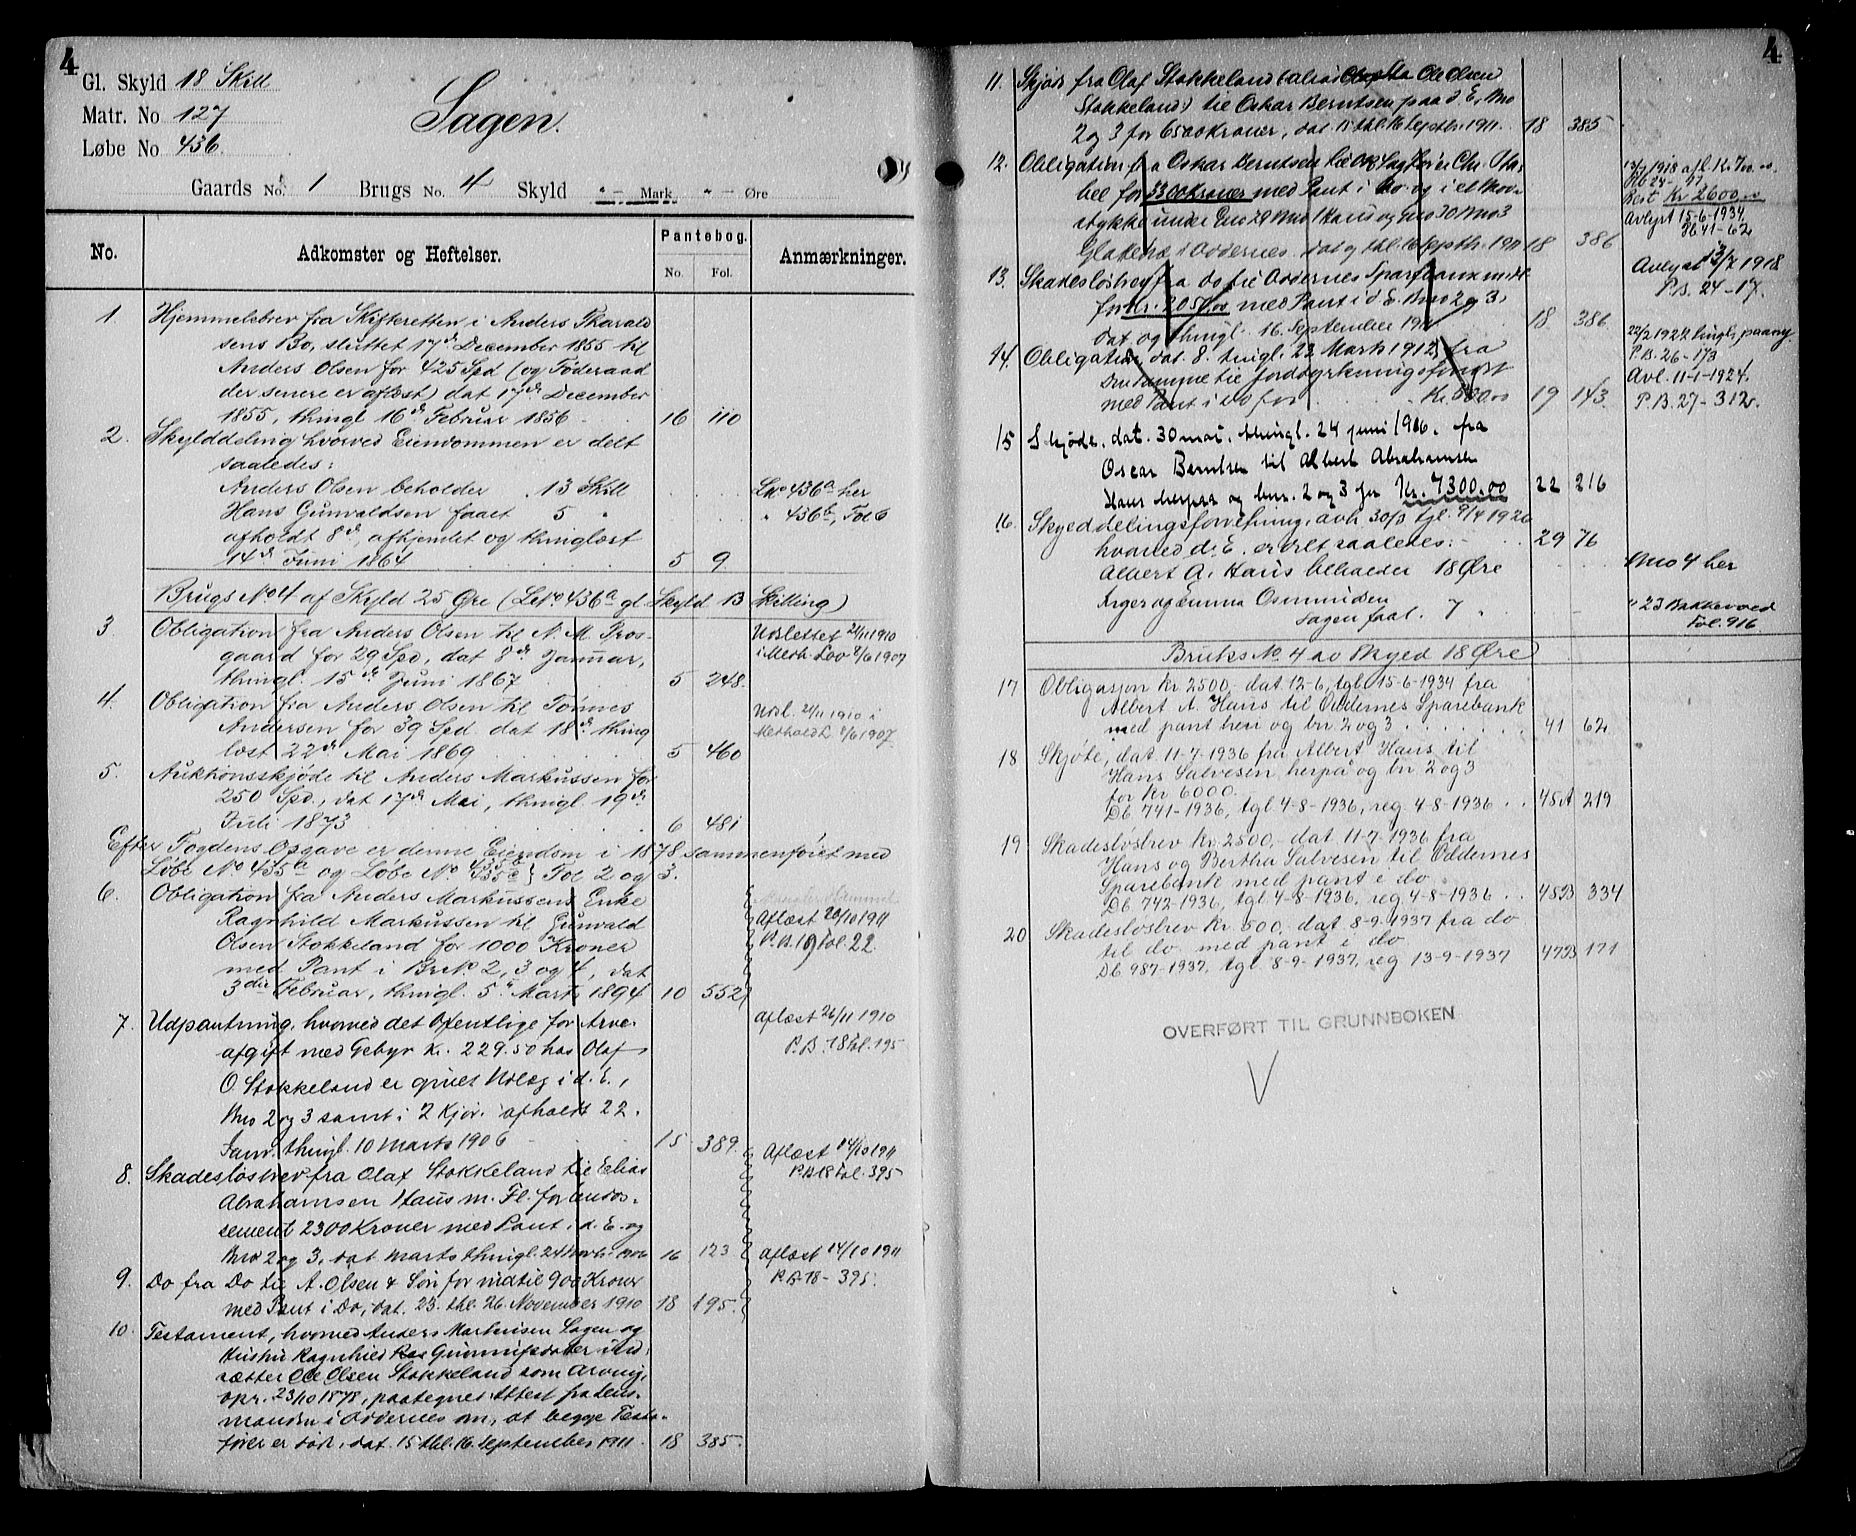 4
Gl. Skyld 18 Skill
Matr. No 127
Løbe No 436.
Sagen.
Gaards No. 1 Brugs No. 4 Skyld "— Mark "— Øre
No. Adkomster og Heftelser. Pantebog. No. Fol. Anmærkninger.
1. Hjemmelsbrev fra Skifteretten i Anders Tharald
sens Bo, sluttet 17de December 1855 til
Anders Olsen for 425 Spd (og Föderaad
der senere er aflæst) dat 17de December
1855, thingl 16de Februar 1856 16 110
2. Skylddeling hvorved Eiendommen er delt
saaledes:
Anders Olsen beholder 13 Skill Lno 436a her
Hans Gunvaldsen faaet 5 " " 436b, Fol 6
afholdt 8de, afhjemlet og thinglæst
14de Juni 1864 5 9
Brugs No. 4 af Skyld 25 Øre (Lno. 436a gl. Skyld 13 Skilling)
3. Obligation fra Anders Olsen til N. M. Pros-
gaard for 29 Spd, dat 8de Januar,
thingl. 15de Juni 1867 5 248.
Udslettet 21/11 1910
i Meth. Lov 8/6 1907
4. Obligation fra Anders Olsen til Tønnes
Andersen for 39 Spd. dat 18de thing
læst 22de Mai 1869 5 460
Udsl. 21/11 1910 i
Methold L. 8/6 1907.
5. Auktionsskjøde til Anders Markussen for
250 Spd., dat 17de Mai, thingl 19de
Juli 1873 6 481
Efter Fogdens Opgave er denne Eiendom i 1878 sammenføiet med
Løbe No 435a og Løbe No 435c } Fol 2 og 3.
6. Obligation fra Anders Markussens Enke
Ragnhild Markussen til Gunvald
Olsen Stokkeland for 1000 Kroner
med Pant i Brk. 2, 3 og 4, dat
3die Februar, thingl. 5te Marts 1894 10 552
Aflæst 20/10 1911
P.B. 19 Fol. 22.
7. Udpantning, hvorved det Offentlige for Arve-
afgift med Gebyr Kr. 229.50 hos Olaf
O. Stokkeland er givet Udlæg i d. E.,
Bno 2 og 3 samt i 2 Kjør. afholdt 22.
Janr. thingl. 10 Marts 1906 15 389.
Aflæst 26/11 1910
P.B. 18 Fol. 195
8. Skadesløsbrev fra Olaf Stokkeland til Elias
Abrahamsen Haus m. Fl. for endos-
sement 2300 Kroner med Pant i d. E. og
Bno 2 og 3, dat Marts thingl. 24 Novb. 1906 16 123
Aflæst 14/10 1911
P.B. 18 Fol. 395
9. Do fra Do til A. Olsen & Søn for indtil 900 Kroner
med Pant i Do, dat. 23. thl. 26. November 1910 18 195.
Aflæst 14/10 1911
P.B. 18 - 395.
10. Testament, hvorved Anders Markusen Sagen og
Hustru Ragnhild Gunnufsdatter ind-
sætter Ole Olsen Stokkeland som Arving,
opr. 23/10 1878, paategnet Attest fra Lens-
manden i Oddernes om, at begge Testa-
torer er død, dat. 15 thl. 16. September 1911 18 385.
4
11. Skjøde fra Olaf Stokkeland (alias Ole Olsen
Stokkeland) til Oskar Berntsen paa d. E., Bno
2 og 3 for 6500 Kroner, dat. 15 thl. 16 Septbr. 1911. 18 385
12. Obligation fra Oskar Berntsen til O.R. Sagfører Chr. Ha-
bel for 3300 Kroner med Pant i Do og i et Skov-
stykke under Gno 29 Bno 1 Haus og Gno 30 Bno 3
i Oddernes. dat og thl. 16 Septbr. 1911 18 386
13/7 1918 afl. Kr. 700.00
Pb 24 - 17
Rest Kr 2600.00
Avlyst 15-6-1934
Pb 41-62
13. Skadesløsbrev fra do til Oddernes Sparebank indt.
for Kr. 2050.00 med Pant i d. E. Bno 2 og 3.
dat. og thingl. 16. September 1911 18 386.
Avlyst 13/7 1918
P.B. 24-17.
14. Obligation dat. 8. tingl. 22 Marts 1912 fra
Samme til Jorddyrkningsfondet
med Pant i do for Kr. 500.00 19 143.
22/2 1922 tingl. paany
P.B. 26-173
Avl. 11-1-1924.
P.B. 27-312.
15 Skjøde. dat. 30 mai. thingl. 24 juni 1916. fra
Oscar Berntsen til Albert Abrahamsen
Haus herpaa og bnr. 2 og 3 for Kr. 7300.00 22 216
16. Skylddelingsforretning, avh. 30/3 tgl. 9/4 1926
hvorved d. E. er delt saaledes: 29 76
Albert A. Haus beholder 18 Øre Bno 4 her
Inger og Emma Osmundsen
Sagen faat. 7 " " 23 Bakkevold
Fol. 916
Bruks No. 4 av Skyld 18 Øre
17 Obligasjon kr 2500,- dat 12-6, tgl 15-6-1934 fra
Albert A. Haus til Oddernes Sparebank
med pant heri og bnr 2 og 3 41 62
18 Skjøte, dat 11-7-1936 fra Albert Haus til
Hans Salvesen herpå og bnr 2 og 3
for Kr 6000.
Db 741-1936, tgl 4-8-1936, reg 4-8-1936 45A 219
19 Skadesløsbrev Kr. 2500,- dat. 11-7-1936 fra
Hans og Bertha Salvesen til Oddernes
Sparebank med pant i do
Db 742-1936, tgl 4-8-1936, reg 4-8-1936 45B 334
20 Skadesløsbrev kr. 600,- dat 8-9-1937 fra do
til do med pant i do
Db 987-1937, tgl 8-9-1937, reg 13-9-1937 47B 171
OVERFØRT TIL GRUNNBOKEN